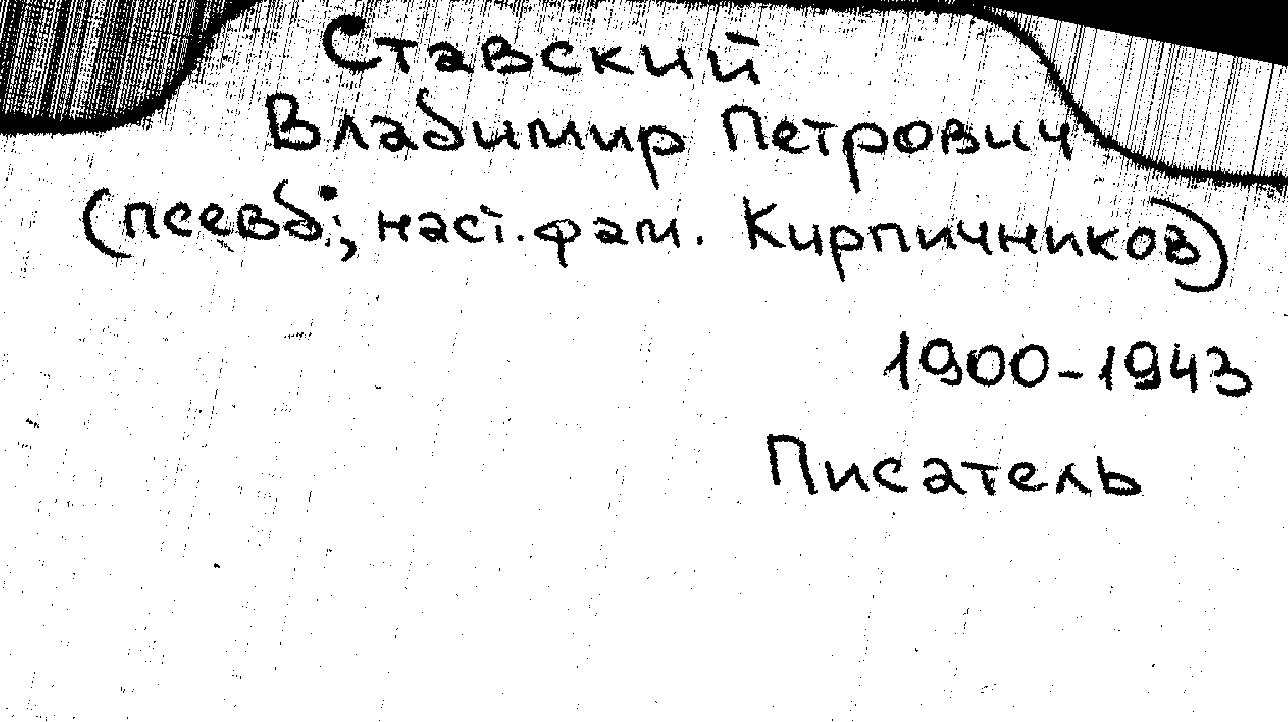 Ставский
Владимир Петрович
(псевд.; наст. фам. Кирпичников)
1900-1943
Писатель